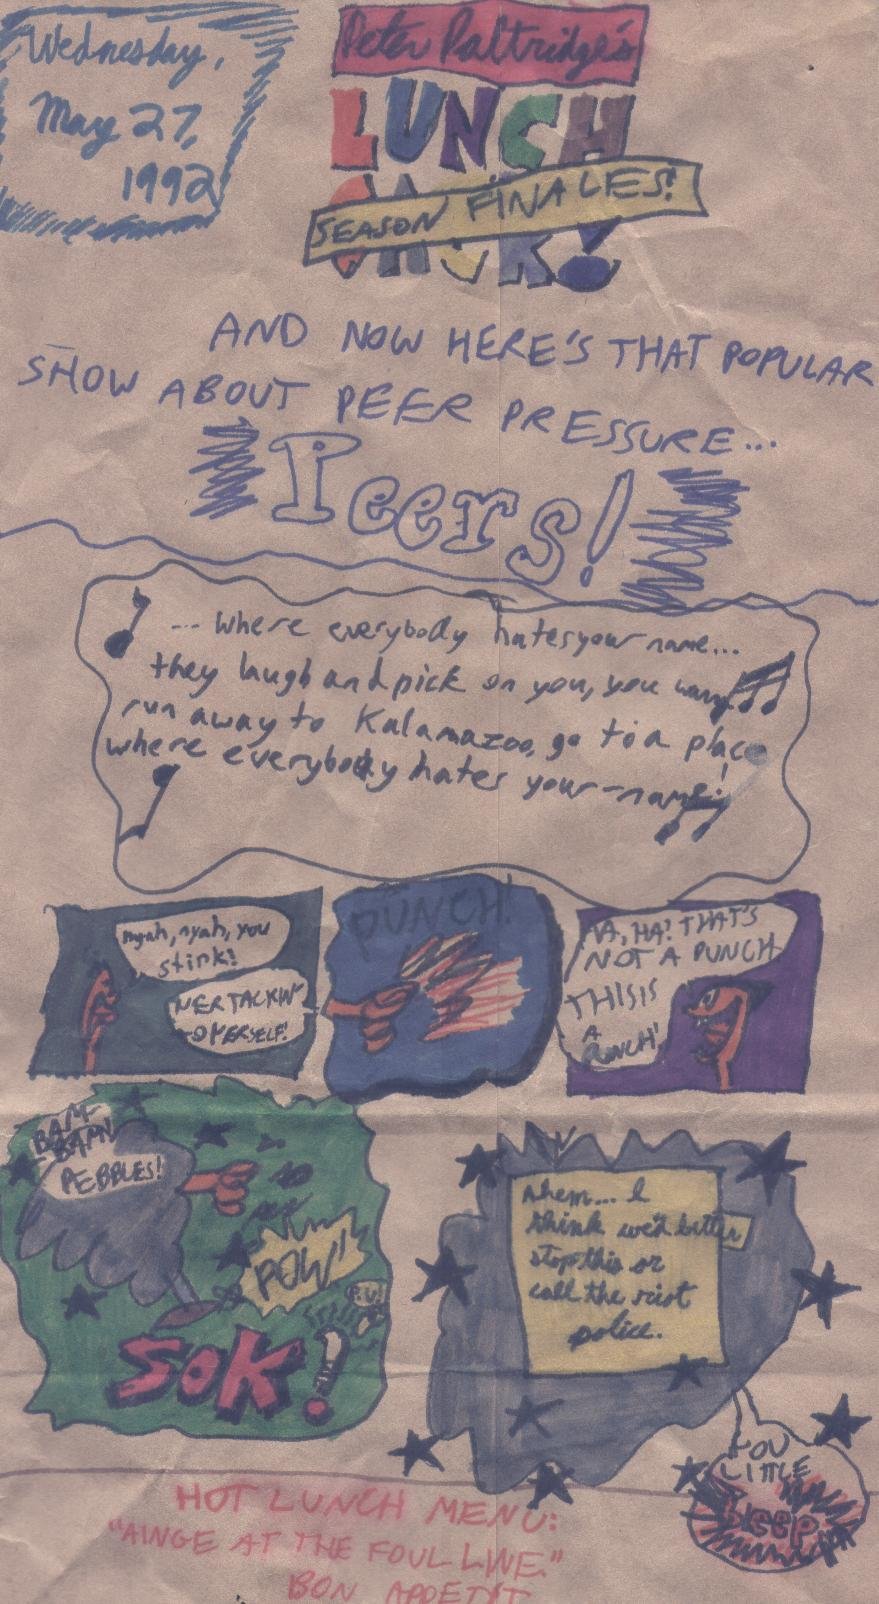 Wednesday,
May 27,
1992
Peter Paltridge's
LUNCH
SACK!
SEASON FINALES!
AND NOW HERE'S THAT POPULAR
SHOW ABOUT PEER PRESSURE...
Peers!
... where everybody hates your name...
they laugh and pick on you, you wanna
run away to Kalamazoo, go to a place
where everybody hates your name!
nyah, nyah, you
stink!
YER TALKIN'
O'YERSELF!
PUNCH!
HA, HA! THAT'S
NOT A PUNCH
THIS IS
A
PUNCH!
BAM-
BAM!
PEBBLES!
POW!
P.U!
SOK!
Ahem... I
think we'd better
stop this or
call the riot
police.
YOU
LITTLE
bleep
HOT LUNCH MENU:
"AINGE AT THE FOUL LINE."
BON APPETIT